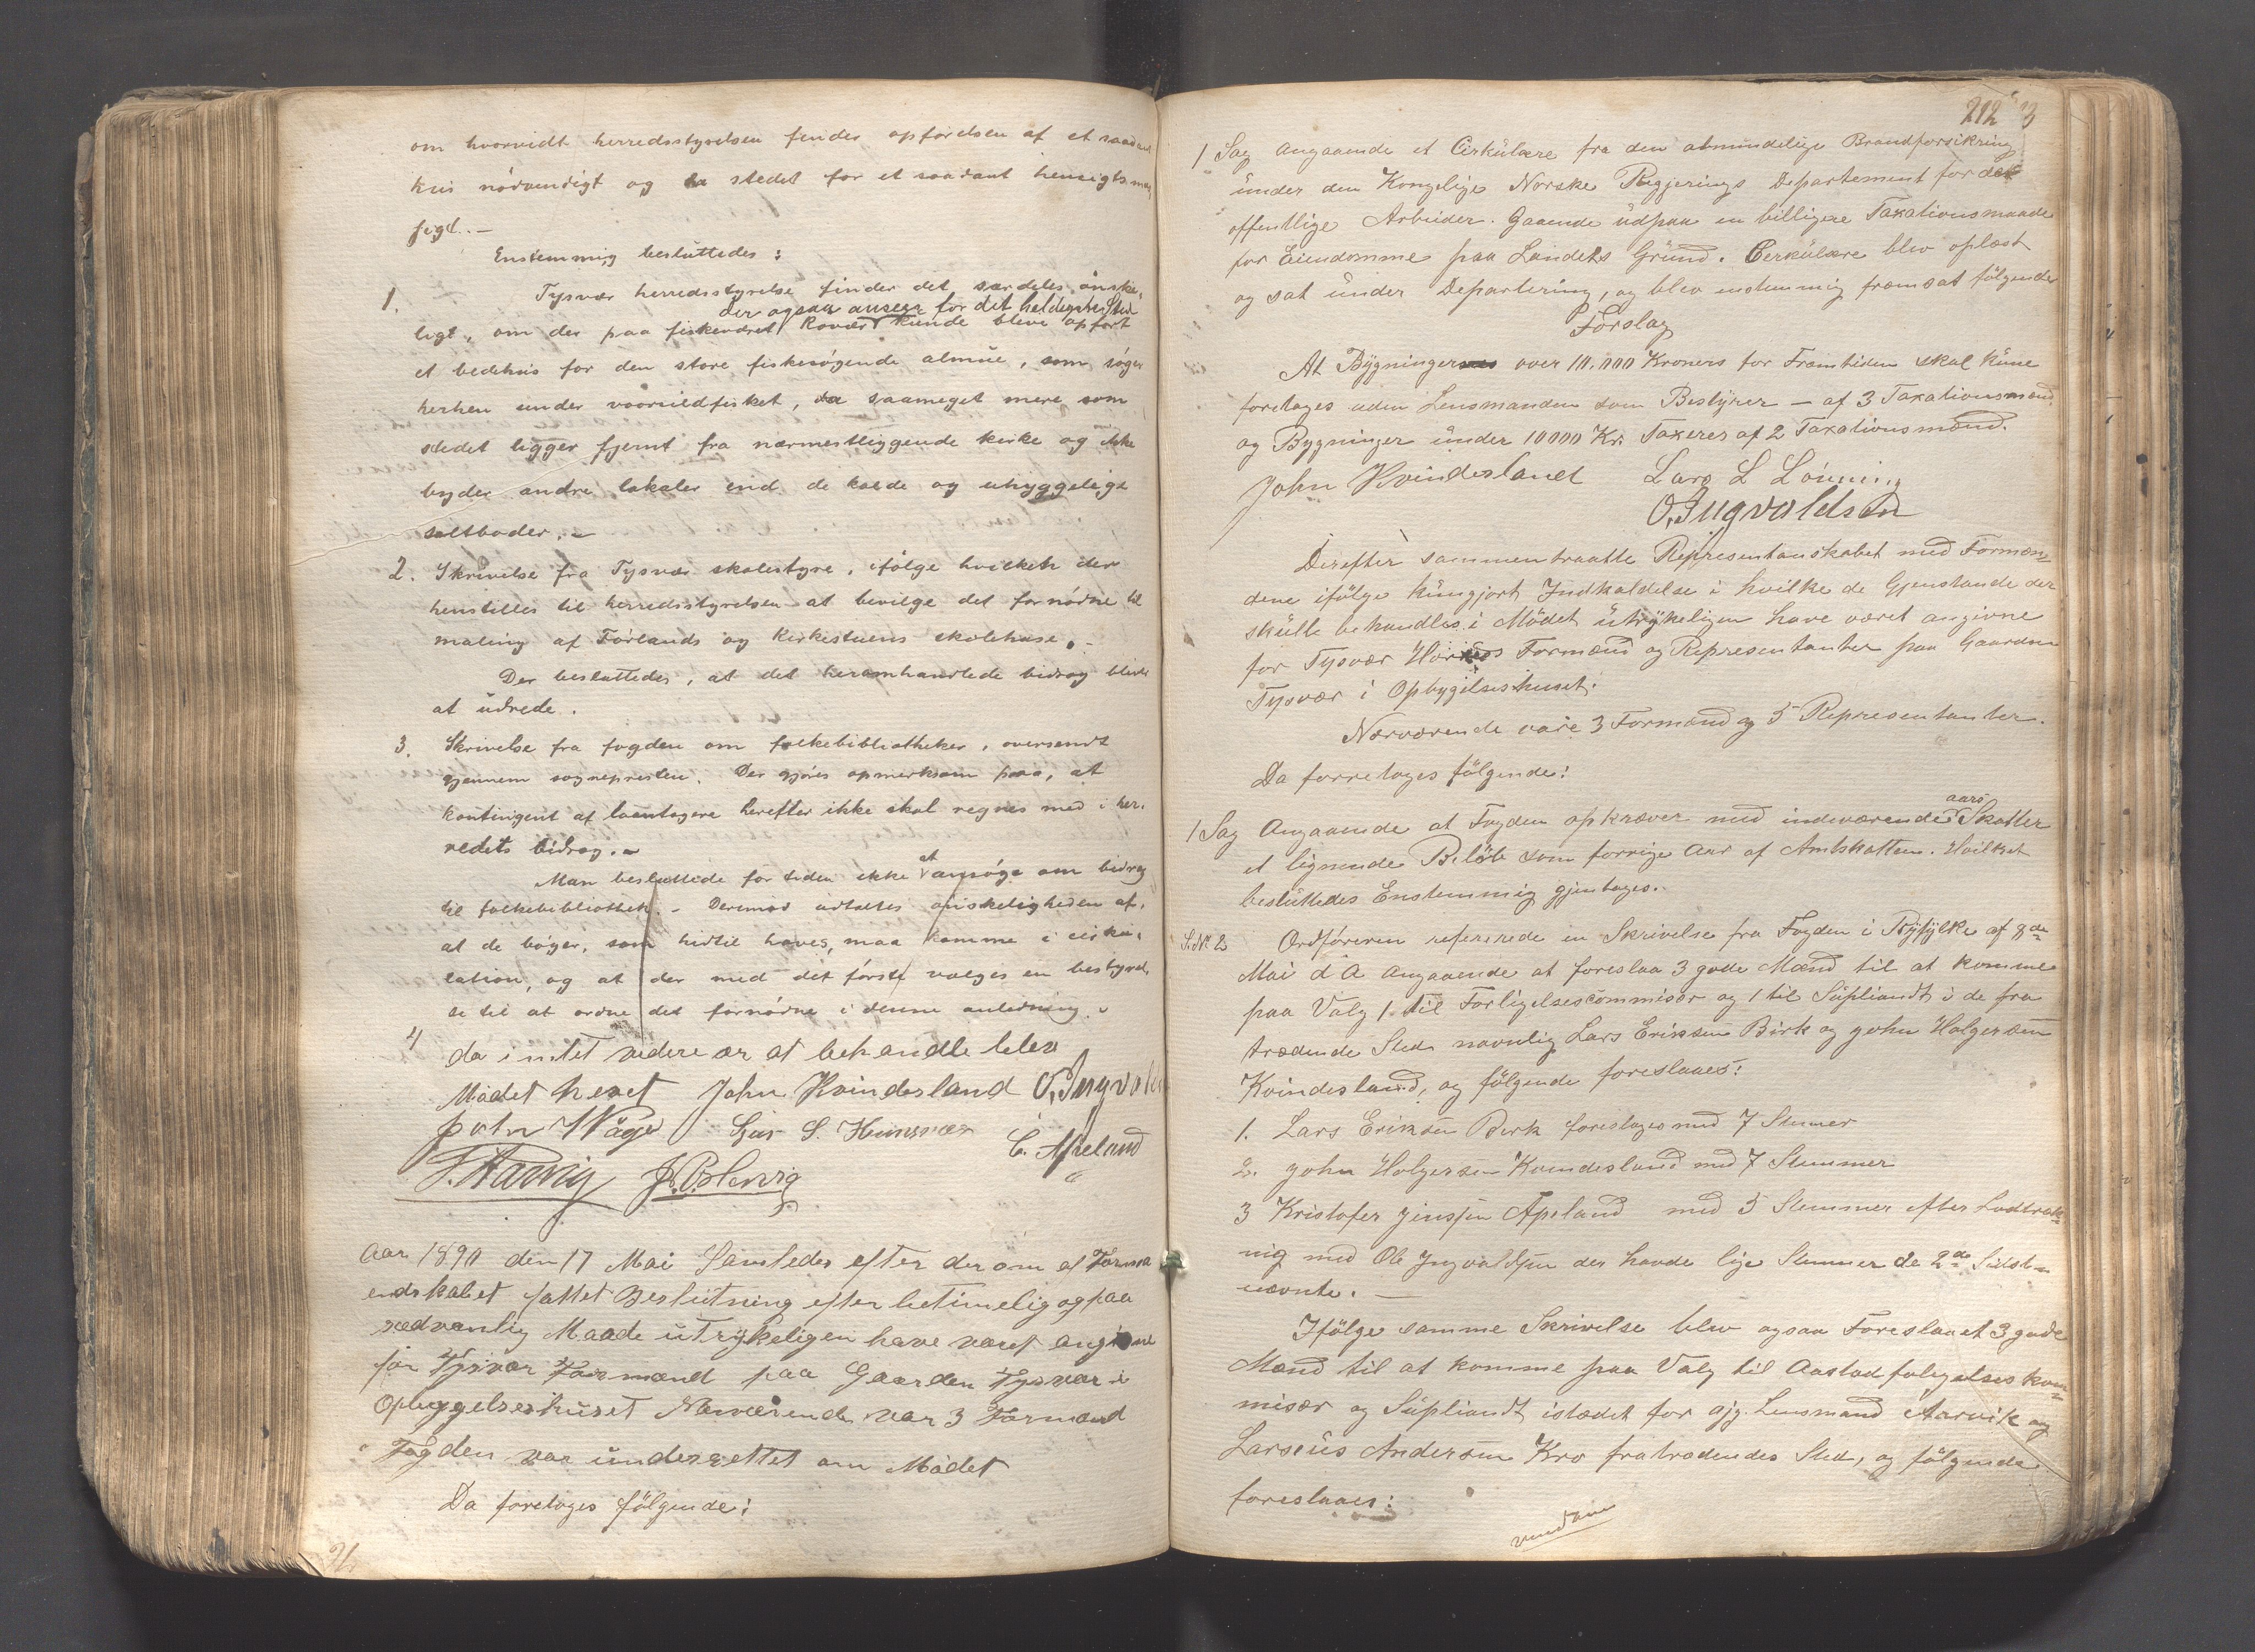 om hvorvidt herredsstyrelsen finder opførelsen af et saadant
hus nødvendigt og stedet for et saadant hensigtsmæs
sigt. –
Enstemmig besluttedes:
1. Tysvær herredsstyrelse finder det særdeles ønske,
der ogsaa ansees for det heldigste Sted
ligt, om der paa fiskeværet Rovær kunde bleve opført
et bedehus for den store fiskesøgende almue, som søger
herhen under vaarsildfisket, saameget mere som
stedet ligger fjernt fra nærmestliggende kirke og ikke
byder andre lokaler end de kolde og uhyggelige
saltboder. –
2. Skrivelse fra Tysvær skolestyre, ifølge hvilken der
henstilles til herredsstyrelsen at bevilge det fornødne til
maling af Førlands og Kirkestuens skolehuse. –
Der besluttedes, at det heromhandlede bidrag bliver
at udrede.
3. Skrivelse fra fogden om folkebibliotheker, oversendt
gjennem sognepresten. Der gjøres opmerksom paa, at
kontingent af laantagere herefter ikke skal regnes med i her,
redets bidrag. –
Man besluttede for tiden ikke at ansøge om bidrag
til folkebibliothek. – Derimod udtaltes ønskeligheden af,
at de bøger, som hidtil haves, maa komme i cirku,
lation, og at der med det første vælges en bestyrel,
se til at ordne det fornødne i denne anledning. –
4 da intet videre ar at behandle blev
Mødet hevet John Kvindesland O. Ingvalds
John Våge Sjur S. Hunsvær
C. Apeland
T. Aarvig
Aar 1890 den 17 Mai Samledes efter der om af Forma
endskabet fattet Beslutning efter betimelig og paa
sædvanlig Maade utrykeligen have været angivne
for Tysvær Formænd paa Gaarden Tysvær i
Opbyggelseshuset Nærværende var 3 Formænd
Fogden var underrettet om Mødet
Da foretoges følgende:
212
1 Sag Angaaende et Cirkulære fra den almindelige Brandforsikring
under den Kongelige Norske Regjerings Departement for det
offentlige Arbeider. Gaaende udpaa en billigere Taxationsmaade
for Eiendomme paa Landets Grund. Cerkulære blev oplæst
og sat under Departering, og blev enstemmig fremsat følgende
Forslag
At Bygninger over 10.000 Kroners for Fremtiden skal kune
foretages uden Lensmanden som Bestyrer – af 3 Taxationsmænd
og Bygninger under 10000 Kr. Taxeres af 2 Taxationsmænd.
John Kvindesland Lars L Lönning
O. Ingvaldsen
Derefter sammentraatte Representanskabet med Formæn=
dene ifølge kungjort Indkaldelse i hvilke de Gjenstande der
skulle behandles i Mødet utrykeligen have været angivne
for Tysvær Formænd og Representanter paa Gaarden
Tysvær i Opbygelseshuset.
Nærværende vare 3 Formænd og 5 Representanter.
Da forretoges følgende:
1 Sag Angaaende at Fogden opkræver med indeværende aars Skatter
et lignende Beløb som forrige Aar af Amtskatten. Hvilket
besluttedes Enstemmig gjentages.
S. No 2 Ordføreren refererede en Skrivelse fra Fogden i Ryfylke af 8de
Mai d A angaaende at foreslaa 3 gode Mænd til at komme
paa Valg 1 til Forligelsescommisær og 1 til Supliandt i de fra
trædende Sted navnlig Lars Eriksen Birk og John Holgersen
Kvindesland, og følgende foreslaaes:
1. Lars Eriksen Birk foreslages med 7 Stemer
2. John Holgersen Kvindesland med 7 Stemmer
3 Kristofer Jensen Apeland med 5 Stemmer efter Lodtræk=
nig med Ole Ingvaldsen der havde lige Stemmer de 2de Sidst=
nævnte. —
Ifølge samme Skrivelse blev ogsaa Foreslaaet 3 gode
Mænd til at komme paa Valg til Aastad foligelseskom=
misær og Supliandt istædet for Lensmand Aarvik og
Larseus Andersen Kro fratrædendes Sted, og følgende
foreslaaes: